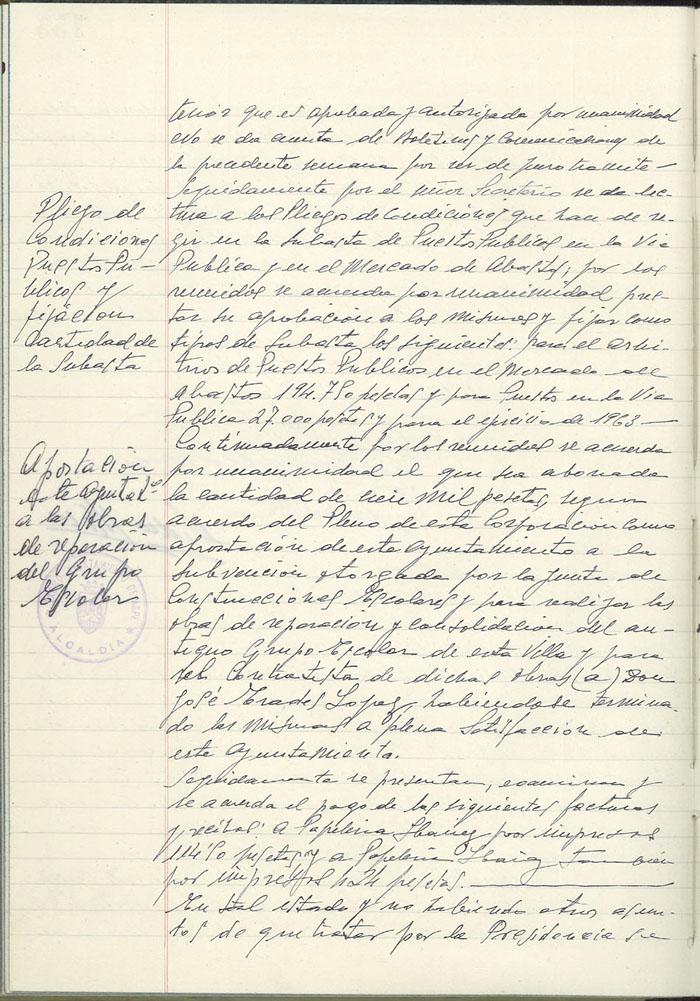 terior que es aprobada y autorizada por unanimidad
No se da cuenta de Boletines y Comunicaciones de
la precedente semana por ser de puro trámite—
Seguidamente por el señor Secretario se da lec-
tura a los Pliegos de Condiciones que han de re-
gir en la Subasta de Puestos Publicos en la Via
Publica y en el Mercado de Abastos; por los
reunidos se acuerda por unanimidad pres-
tar su aprobación a los mismos y fijar como
tipos de Subasta los siguientes: para el arbi-
trios de Puestos Publicos en el Mercado de
Abastos 194.750 pesetas y para Puestos en la Via
Publica 27.000 pesetas y para el ejercicio de 1963—
Continuadamente por los reunidos se acuerda
por unanimidad el que sea abonada
la cantidad de cien mil pesetas, segun
acuerdo del Pleno de esta Corporación como
aportación de este Ayuntamiento a la
Subvención otorgada por la Junta de
Construcciones Escolares y para realizar las
obras de reparación y consolidacion del an-
tiguo Grupo Escolar de esta Villa y para
el Contratista de dichas obras (a) Don
José Prades Lopez, habiendose termina-
do las mismas a plena Satisfacción de
este Ayuntamiento.
Seguidamente se presentan, examinan y
se acuerda el pago de las siguientes facturas
y recibos: a Papeleria Ibañez por impresos
pesetas, y a Papeleria Ibañez tambien
por impresos 424 pesetas.
En tal estado y no habiendo otros asun-
tos de que tratar por la Presidencia se
Pliego de
Condiciones
Puestos Pú-
blicos y
fijación
cantidad de
la Subasta
Aportación
este Ayuntatº
a las obras
de reparación
del Grupo
Escolar
ALCALDIA